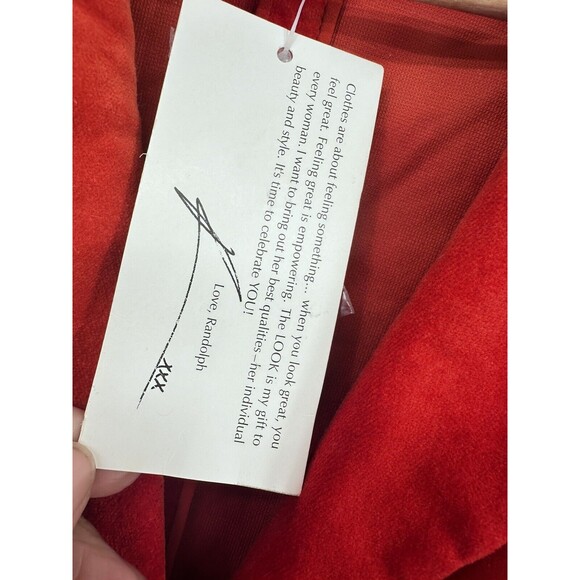 Clothes are about feeling something... when you look great, you
feel great. Feeling great is empowering. The LOOK is my gift to
every woman. I want to bring out her best qualities – her individual
beauty and style. It's time to celebrate YOU!
Love, Randolph
xxx